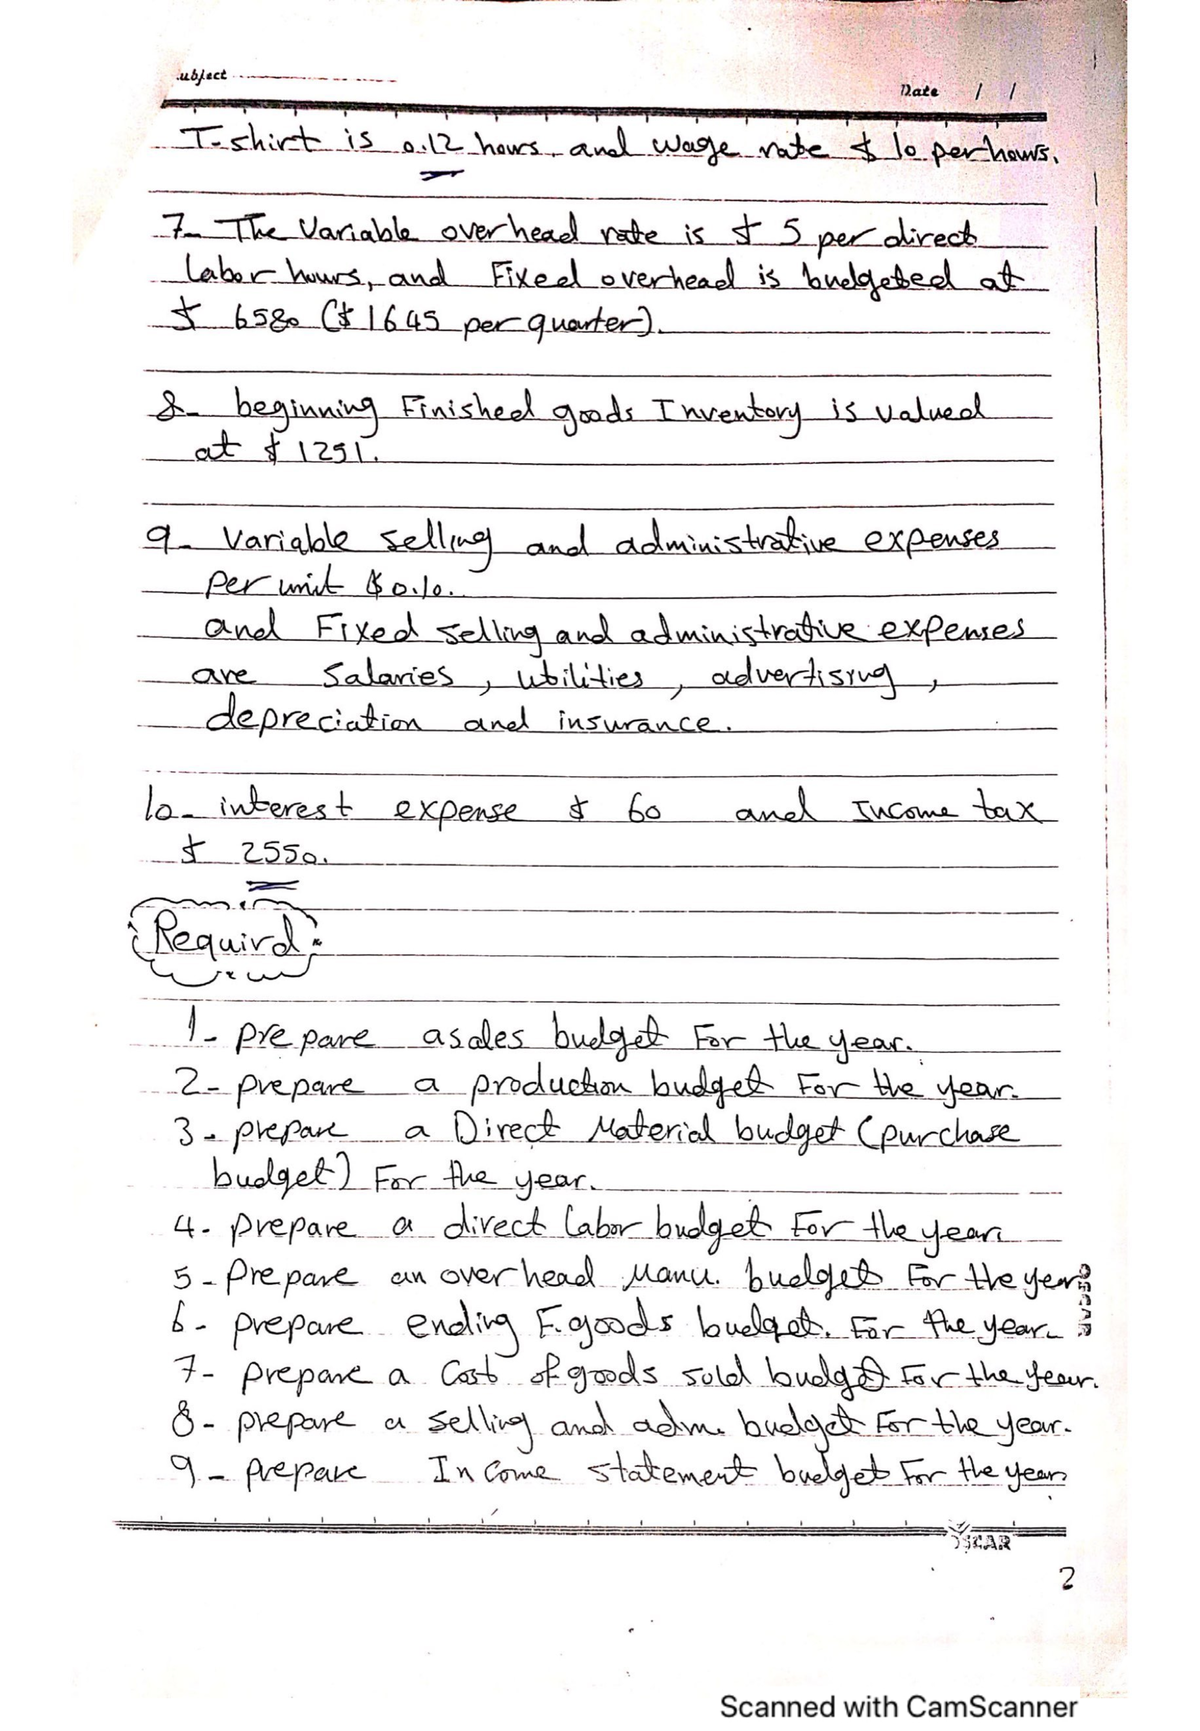 Subject
Date / /
T-shirt is 0.12 hours, and wage rate $ 10 per hours.
7- The Variable overhead rate is $ 5 per direct
labor hours, and Fixed overhead is budgeted at
$ 6580 ($1645 per quarter).
8- beginning Finished goods Inventory is valued
at $ 1251.
9- Variable selling and administrative expenses
per unit $0.10.
and Fixed selling and administrative expenses
are Salaries, utilities, advertising,
depreciation and insurance.
10- interest expense $ 60 and Income tax
$ 2550.
Requird:
1- prepare a sales budget For the year.
2- prepare a production budget For the year.
3- prepare a Direct Material budget (purchase
budget) For the year.
4- prepare a direct labor budget For the year.
5- Prepare an overhead Manu. budget For the year
6- prepare ending F.goods budget. For the year.
7- prepare a Cost of goods sold budget For the year.
8- prepare a selling and adm. budget For the year.
9- prepare Income statement budget For the year
OSCAR
OSCAR
2
Scanned with CamScanner